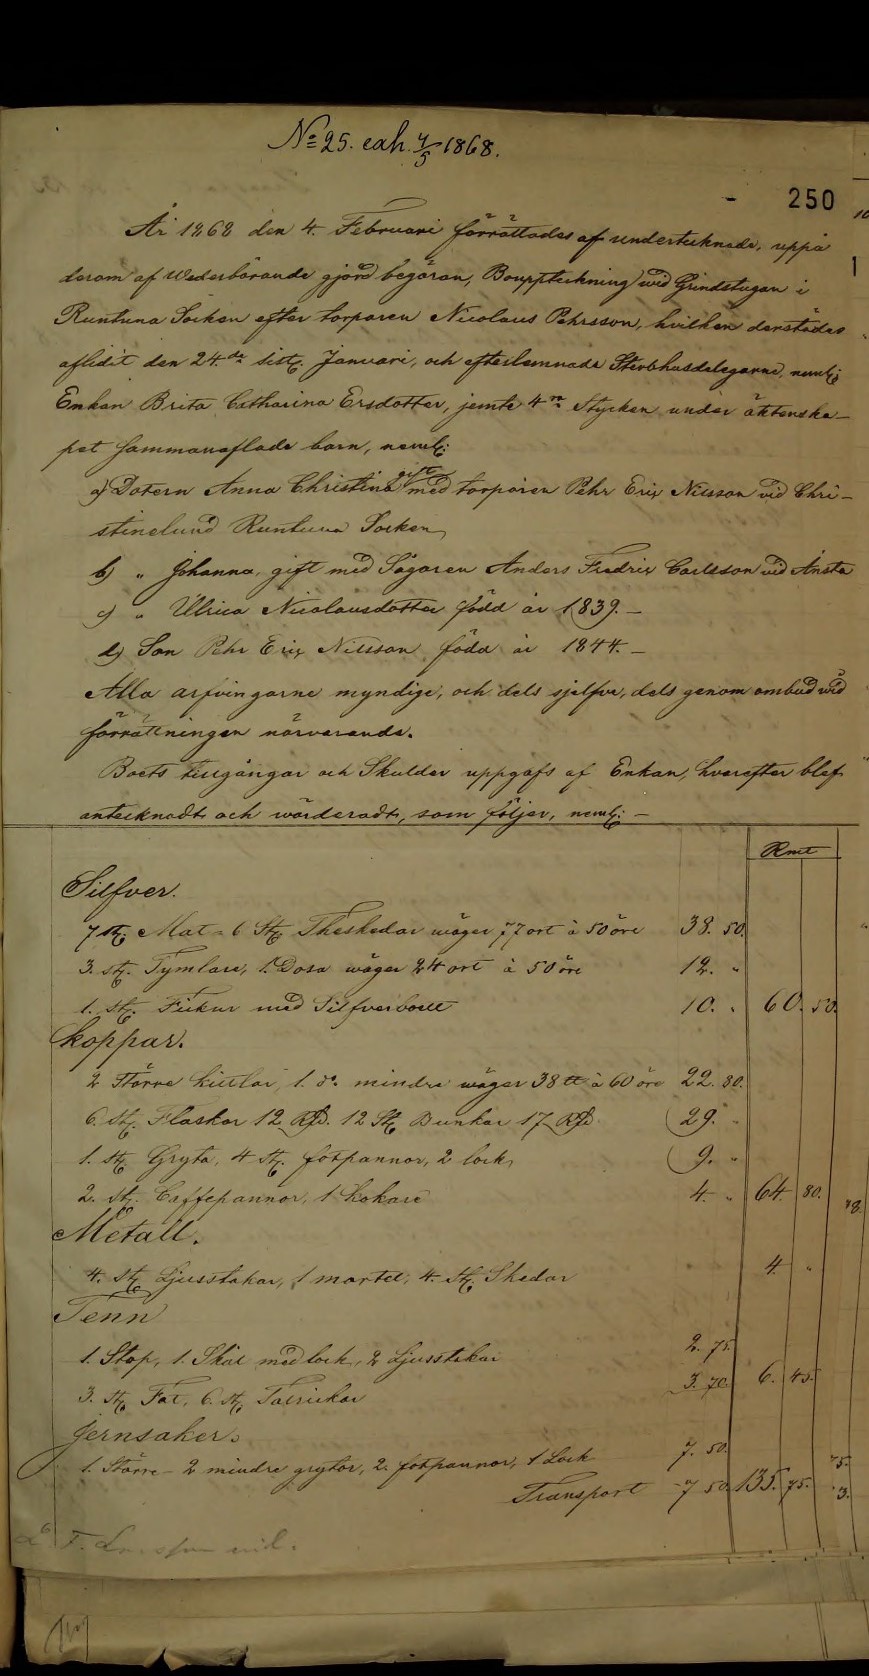 No 25. exh. 4/5 1868.
250
År 1868 den 4. Februari förrättades af undertecknade, uppå
derom af Wederbörande gjord begäran, Bouppteckning wid Grindstugan i
Runtuna Socken efter torparen Nicolaus Pehrsson, hvilken derstädes
aflidit den 24.de sistl. Januari, och efterlemnade Sterbhusdelegarne, neml:
Enkan Brita Catharina Ersdotter, jemte 4ra Stycken under äktenska-
pet sammanaflade barn, neml:
a) Dotern Anna Christina gift med torparen Pehr Eric Nilsson vid Chri-
stinelund Runtuna Socken,
b) " Johanna, gift med Sågaren Anders Fredric Carlsson vid Ånsta
c) " Ulrica Nicolausdotter född år 1839. -
d) Son Pehr Eric Nilsson född år 1844. -
Alla arfvingarne myndige, och dels sjelfve, dels genom ombud wid
förrättningen närvarande.
Boets tillgångar och Skulder uppgafs af Enkan, hvarefter blef
antecknadt och wärderadt, som följer, neml: -
Rmt
Silfver.
7 st. Mat- 6 St. Theskedar wäger 77 ort à 50 öre 38. 50.
3. st. Tymlare, 1. Dosa wäger 24 ort à 50 öre 12. "
1. st. Fickur med Silfverboett 10. " 60. 50.
Koppar.
2 Större kittlar, 1. do. mindre wäger 38 ℔ à 60 öre 22. 80.
6. st. Flaskor 12 Rd. 12 St. Bunkar 17 Rd 29. "
1. st. Gryta, 4 st. fotpannor, 2 lock, 9. "
2. st. Caffepannor, 1 kokare 4. " 64. 80.
Metall.
4. st. Ljusstakar, 1 mortel, 4. st. Skedar 4. "
Tenn
1. Stop, 1. Skål med lock, 2 Ljusstakar 2. 75.
3. st. Fat, 6. st. Talrickar 3. 70. 6. 45.
Jernsaker.
1. Större- 2 mindre grytor, 2. fotpannor, 1 Lock 7. 50.
Transport 7 50. 135. 75.